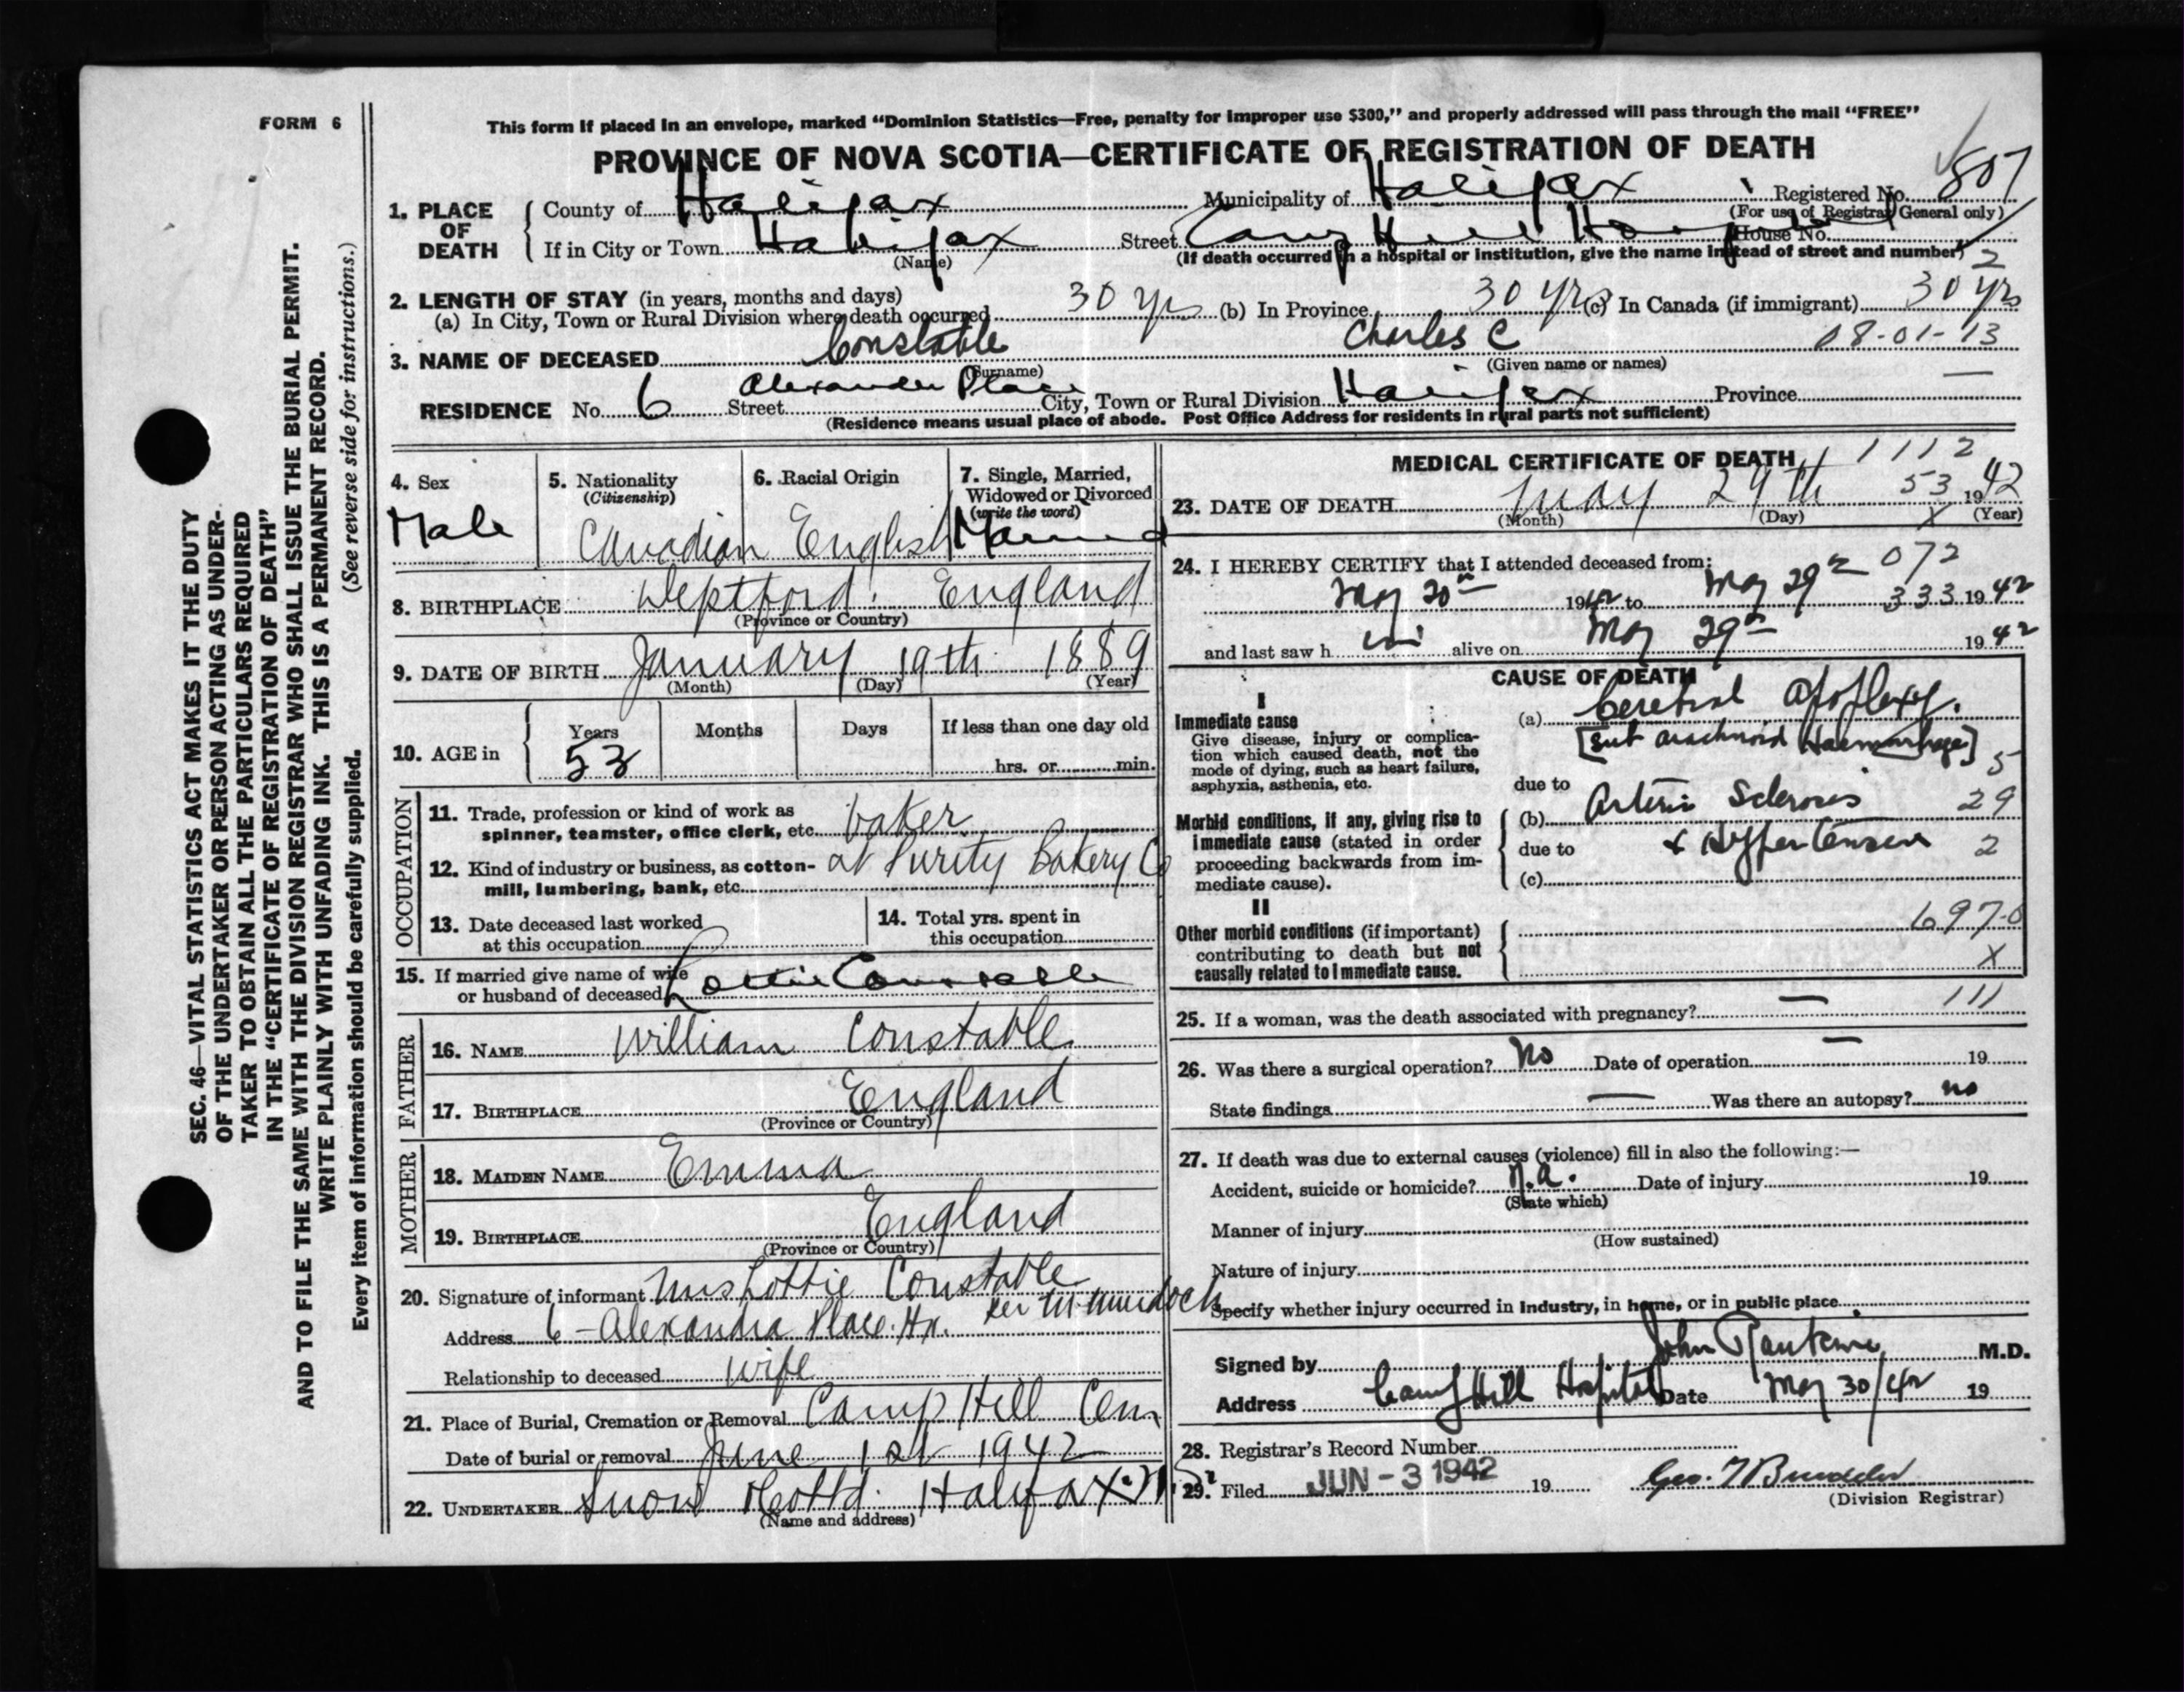 FORM 6
This form if placed in an envelope, marked “Dominion Statistics—Free, penalty for improper use $300,” and properly addressed will pass through the mail “FREE”
PROVINCE OF NOVA SCOTIA—CERTIFICATE OF REGISTRATION OF DEATH
1. PLACE OF DEATH
County of Halifax Municipality of Halifax Registered No. 807
(For use of Registrar General only)
If in City or Town Halifax Street Camp Hill Hospital House No.
(Name) (If death occurred in a hospital or institution, give the name instead of street and number) 2
2. LENGTH OF STAY (in years, months and days)
(a) In City, Town or Rural Division where death occurred 30 yrs (b) In Province 30 yrs (c) In Canada (if immigrant) 30 yrs
3. NAME OF DECEASED Constable Charles C 08-01-13
(Surname) (Given name or names)
RESIDENCE No. 6 Street Alexander Place City, Town or Rural Division Halifax Province —
(Residence means usual place of abode. Post Office Address for residents in rural parts not sufficient)
4. Sex
Male
5. Nationality
(Citizenship)
Canadian
6. Racial Origin
English
7. Single, Married,
Widowed or Divorced
(write the word)
Married
8. BIRTHPLACE Deptford England
(Province or Country)
9. DATE OF BIRTH January 19th 1889
(Month) (Day) (Year)
10. AGE in
Years Months Days If less than one day old
53 hrs. or min.
OCCUPATION
11. Trade, profession or kind of work as
spinner, teamster, office clerk, etc. baker
12. Kind of industry or business, as cotton-
mill, lumbering, bank, etc. at Purity Bakery Co
13. Date deceased last worked
at this occupation
14. Total yrs. spent in
this occupation
15. If married give name of wife
or husband of deceased Lottie Constable
FATHER
16. NAME William Constable
17. BIRTHPLACE England
(Province or Country)
MOTHER
18. MAIDEN NAME Emma
19. BIRTHPLACE England
(Province or Country)
20. Signature of informant Mrs Lottie Constable
per M Murdoch
Address 6 - Alexandra Place Hx.
Relationship to deceased wife
21. Place of Burial, Cremation or Removal Camp Hill Cem
Date of burial or removal June 1st 1942
22. UNDERTAKER Snow & Co Ltd. Halifax N.S.
(Name and address)
MEDICAL CERTIFICATE OF DEATH 1112
23. DATE OF DEATH May 29th 53 1942
(Month) (Day) X (Year)
24. I HEREBY CERTIFY that I attended deceased from: 072
May 20th 1942 to May 29th 333 1942
and last saw him alive on May 29th 1942
CAUSE OF DEATH
I
Immediate cause
Give disease, injury or complica-
tion which caused death, not the
mode of dying, such as heart failure,
asphyxia, asthenia, etc.
(a) Cerebral apoplexy.
[sub arachnoid Haemorrhage] 5
due to
Morbid conditions, if any, giving rise to
immediate cause (stated in order
proceeding backwards from im-
mediate cause).
(b) Arterio Sclerosis 29
due to & Hypertension 2
(c)
II
Other morbid conditions (if important)
contributing to death but not
causally related to immediate cause.
697-0
X
25. If a woman, was the death associated with pregnancy? — 111
26. Was there a surgical operation? No Date of operation — 19
State findings — Was there an autopsy? no
27. If death was due to external causes (violence) fill in also the following:—
Accident, suicide or homicide? N.A. Date of injury 19
(State which)
Manner of injury
(How sustained)
Nature of injury
Specify whether injury occurred in industry, in home, or in public place
Signed by John Rankine M.D.
Address Camp Hill Hospital Date May 30/42 19
28. Registrar's Record Number
29. Filed JUN - 3 1942 19 Geo.
(Division Registrar)
SEC. 46—VITAL STATISTICS ACT MAKES IT THE DUTY
OF THE UNDERTAKER OR PERSON ACTING AS UNDER-
TAKER TO OBTAIN ALL THE PARTICULARS REQUIRED
IN THE “CERTIFICATE OF REGISTRATION OF DEATH”
AND TO FILE THE SAME WITH THE DIVISION REGISTRAR WHO SHALL ISSUE THE BURIAL PERMIT.
WRITE PLAINLY WITH UNFADING INK. THIS IS A PERMANENT RECORD.
(See reverse side for instructions.)
Every item of information should be carefully supplied.